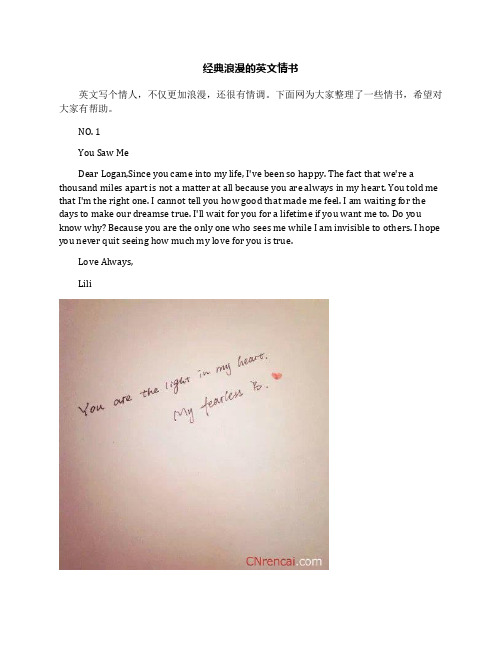 经典浪漫的英文情书
英文写个情人，不仅更加浪漫，还很有情调。下面网为大家整理了一些情书，希望对
大家有帮助。
NO. 1
You Saw Me
Dear Logan,Since you came into my life, I've been so happy. The fact that we're a
thousand miles apart is not a matter at all because you are always in my heart. You told me
that I'm the right one. I cannot tell you how good that made me feel. I am waiting for the
days to make our dreamse true. I'll wait for you for a lifetime if you want me to. Do you
know why? Because you are the only one who sees me while I am invisible to others. I hope
you never quit seeing how much my love for you is true.
Love Always,
Lili
You are the light in my heart.
My fearless
CNrencai.com